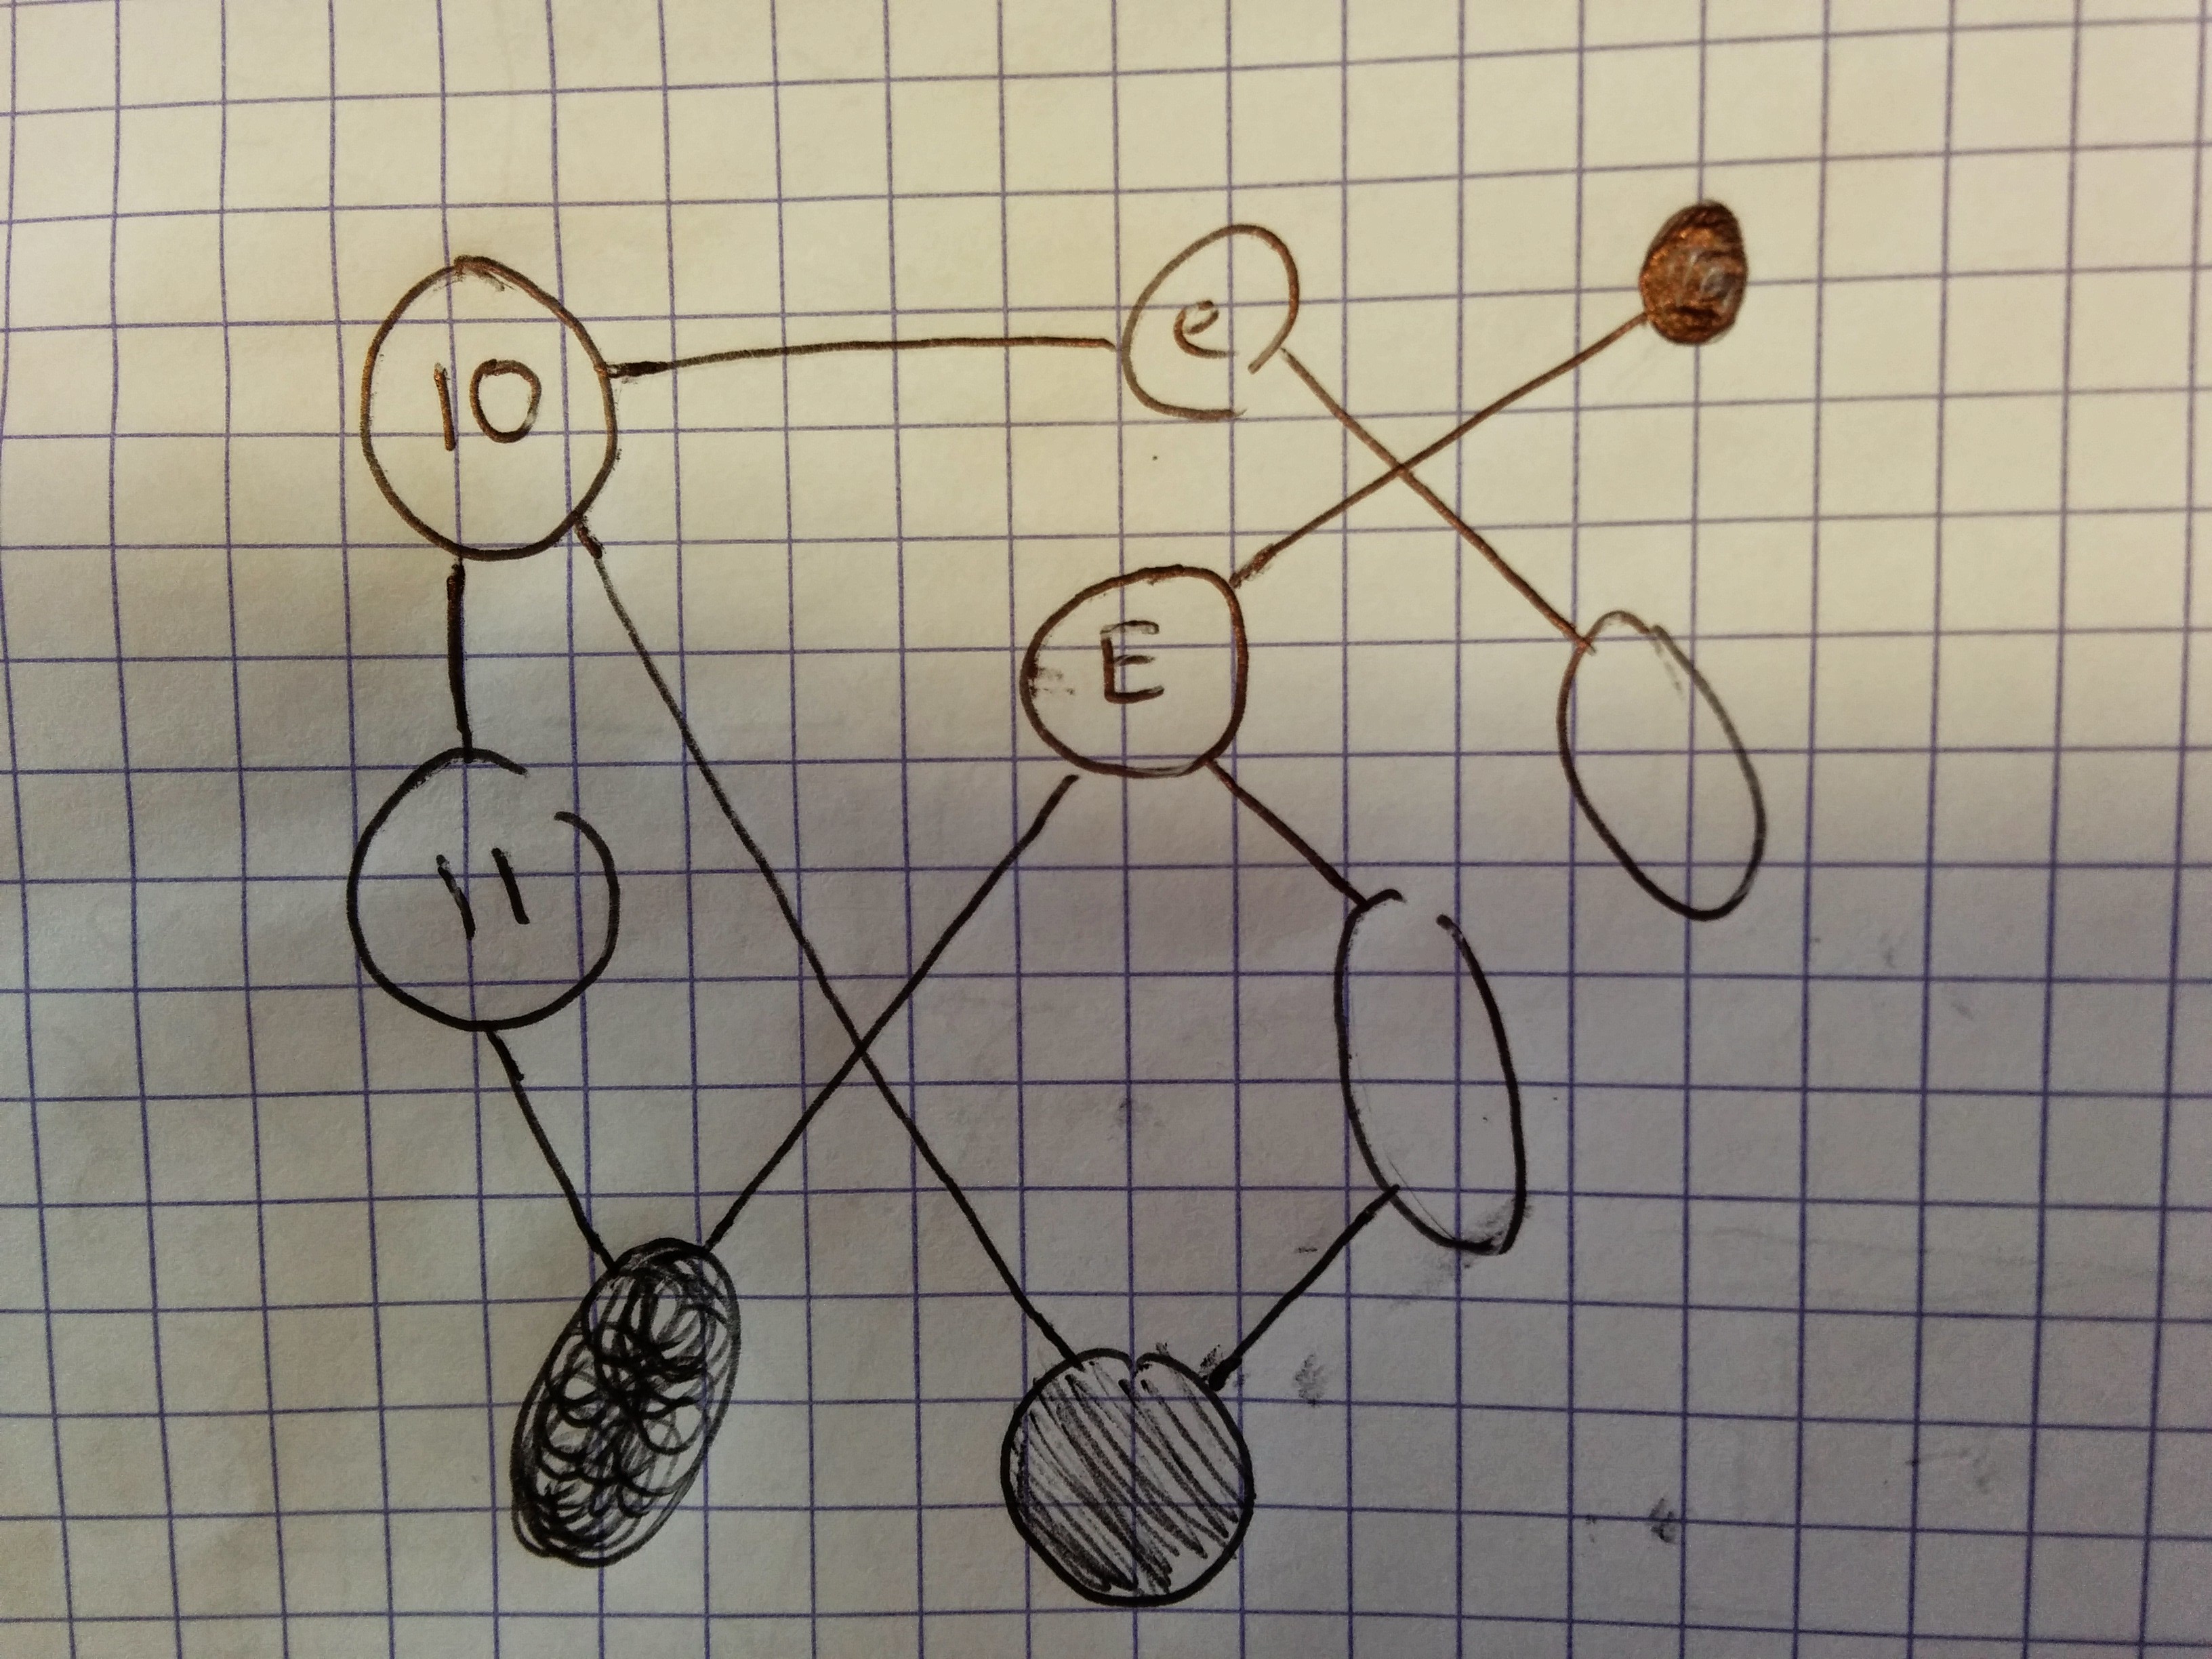 10
e
E
11